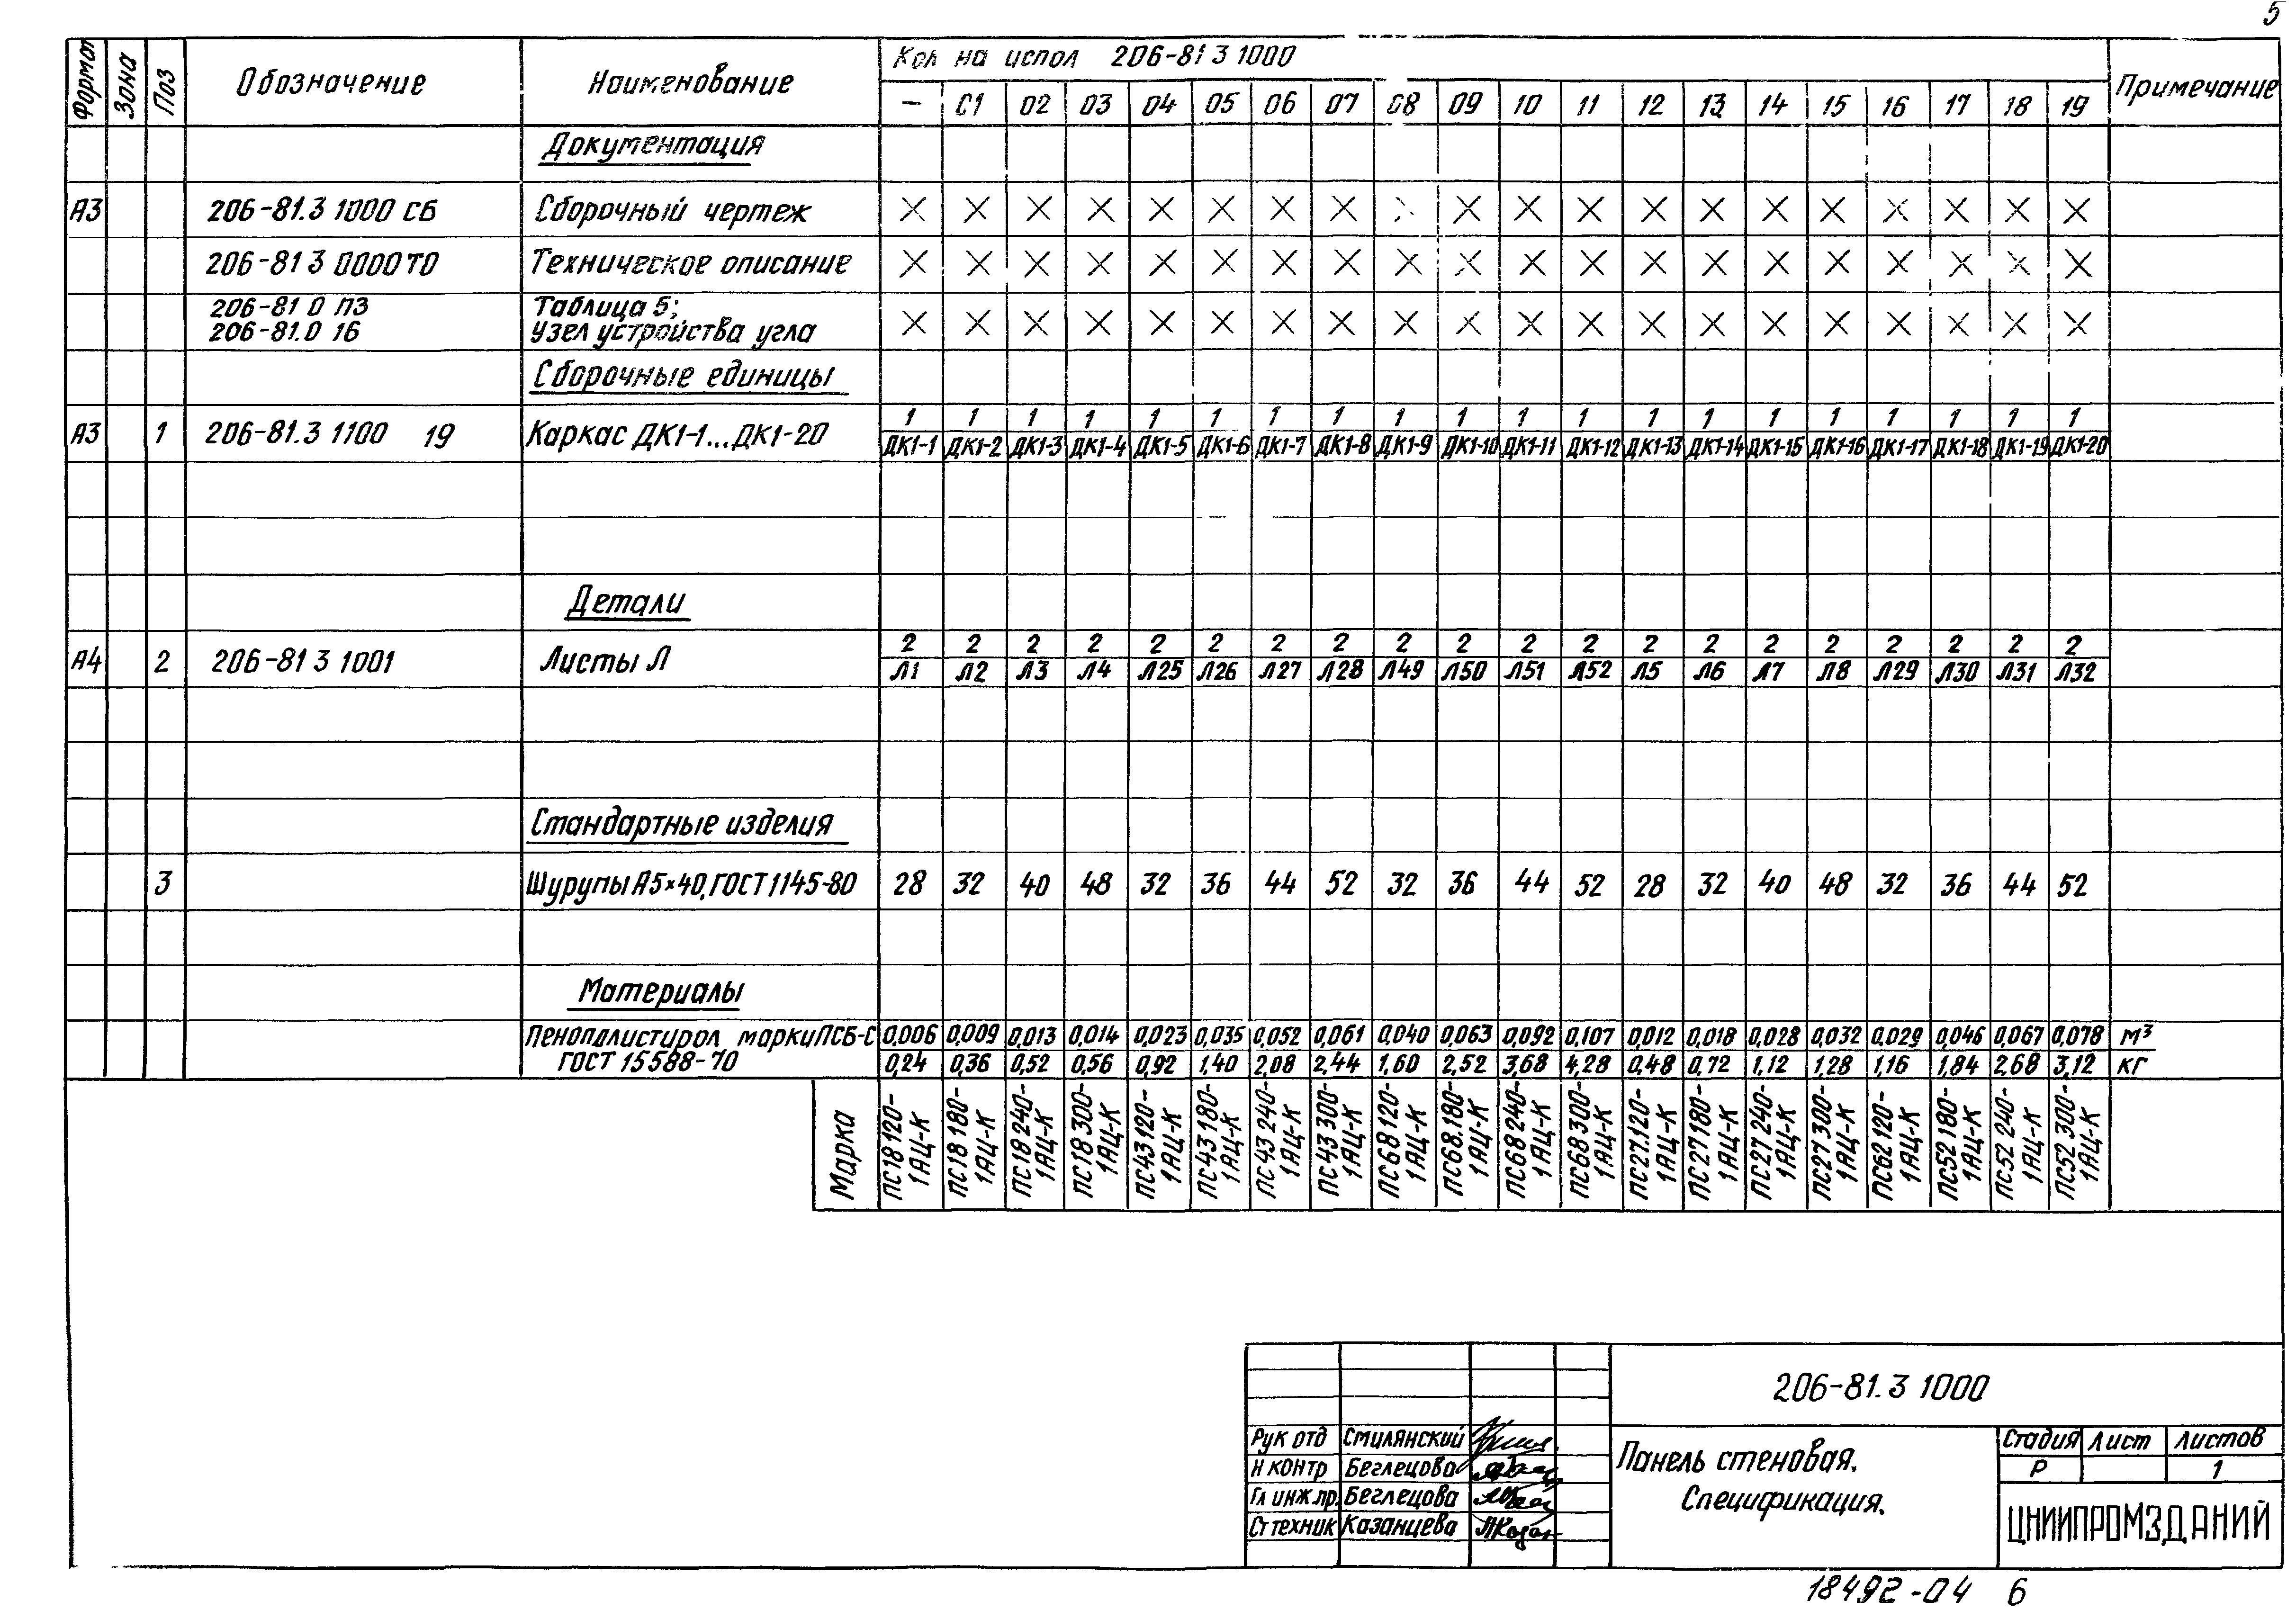 5
Формат Зона Поз Обозначение Наименование Кол на испол 206-81 3 1000 Примечание
— С1 02 03 04 05 06 07 08 09 10 11 12 13 14 15 16 17 18 19
Документация
А3 206-81.3 1000 СБ Сборочный чертеж × × × × × × × × × × × × × × × × × × × ×
206-81 3 0000 ТО Техническое описание × × × × × × × × × × × × × × × × × × × ×
206-81 0 ПЗ Таблица 5;
206-81.0 16 Узел устройства угла × × × × × × × × × × × × × × × × × × × ×
Сборочные единицы
1 1 1 1 1 1 1 1 1 1 1 1 1 1 1 1 1 1 1 1
А3 1 206-81.3 1100 19 Каркас ДК1-1...ДК1-20 ДК1-1 ДК1-2 ДК1-3 ДК1-4 ДК1-5 ДК1-6 ДК1-7 ДК1-8 ДК1-9 ДК1-10 ДК1-11 ДК1-12 ДК1-13 ДК1-14 ДК1-15 ДК1-16 ДК1-17 ДК1-18 ДК1-19 ДК1-20
Детали
2 2 2 2 2 2 2 2 2 2 2 2 2 2 2 2 2 2 2 2
А4 2 206-81 3 1001 Листы Л Л1 Л2 Л3 Л4 Л25 Л26 Л27 Л28 Л49 Л50 Л51 Л52 Л5 Л6 Л7 Л8 Л29 Л30 Л31 Л32
Стандартные изделия
3 Шурупы А5×40, ГОСТ 1145-80 28 32 40 48 32 36 44 52 32 36 44 52 28 32 40 48 32 36 44 52
Материалы
Пенополистирол марки ПСБ-С 0,006 0,009 0,013 0,014 0,023 0,035 0,052 0,061 0,040 0,063 0,092 0,107 0,012 0,018 0,028 0,032 0,029 0,046 0,067 0,078 м³
ГОСТ 15588-70 0,24 0,36 0,52 0,56 0,92 1,40 2,08 2,44 1,60 2,52 3,68 4,28 0,48 0,72 1,12 1,28 1,16 1,84 2,68 3,12 кг
Марка
ПС18 120-
1АЦ-К
ПС18 180-
1АЦ-К
ПС18 240-
1АЦ-К
ПС18 300-
1АЦ-К
ПС43 120-
1АЦ-К
ПС43 180-
1АЦ-К
ПС43 240-
1АЦ-К
ПС43 300-
1АЦ-К
ПС68 120-
1АЦ-К
ПС68.180-
1АЦ-К
ПС68 240-
1АЦ-К
ПС68 300-
1АЦ-К
ПС27.120-
1АЦ-К
ПС27 180-
1АЦ-К
ПС27 240-
1АЦ-К
ПС27 300-
1АЦ-К
ПС62 120-
1АЦ-К
ПС52 180-
1АЦ-К
ПС52 240-
1АЦ-К
ПС52 300-
1АЦ-К
206-81.3 1000
Рук отд Смилянский
Н контр Беглецова
Гл инж.пр. Беглецова
Ст техник Казанцева
Панель стеновая.
Спецификация.
Стадия Лист Листов
Р 1
ЦНИИПРОМЗДАНИЙ
18492-04 6